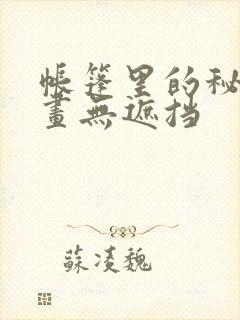 帳篷里的秘
畫無遮挡
蘇凌魏